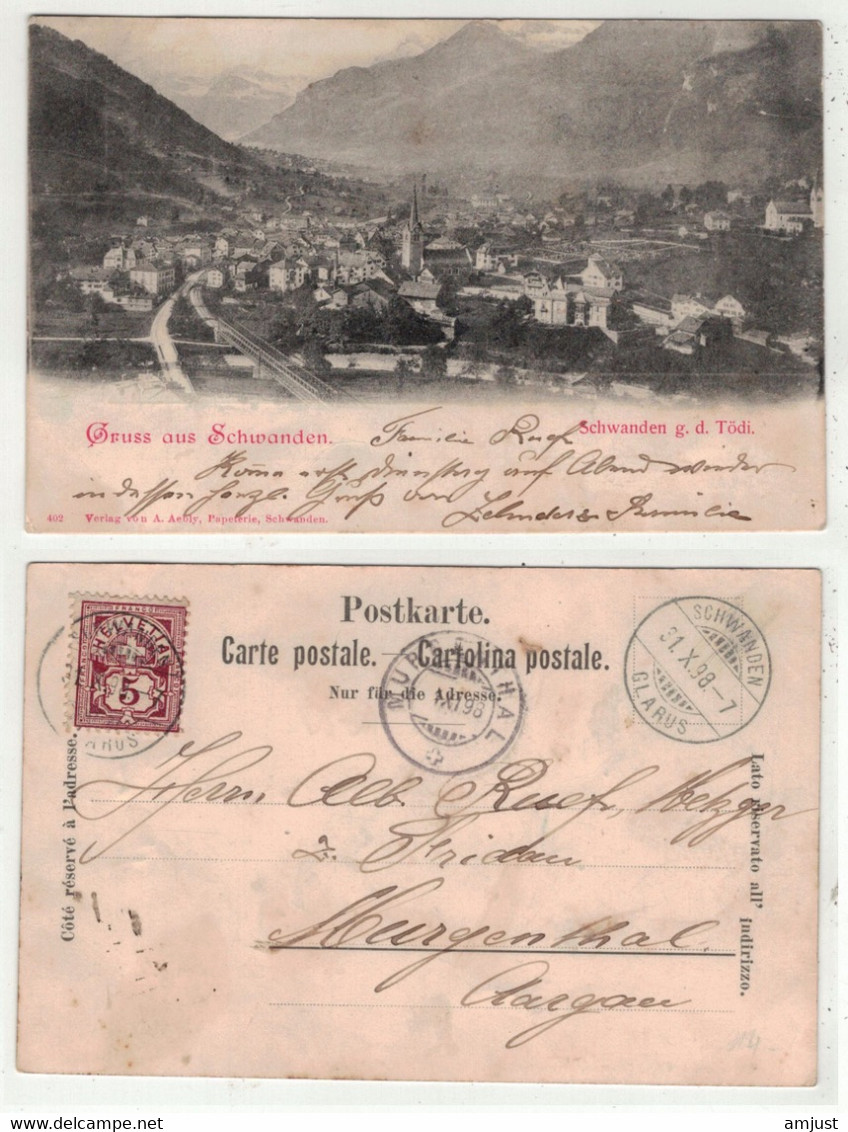 Gruss aus Schwanden.
Familie Ruef
Schwanden g. d. Tödi.
Komme erst Dienstag auf Abend wieder
indessen herzl. Gruß von
Zehnder & Familie
402 Verlag von A. Aebly, Papeterie, Schwanden.
FRANCO
HELVETIA
5
Postkarte.
Carte postale. — Cartolina postale.
Nur für die Adresse.
MURGENTHAL
XI 98
SCHWANDEN
31.X.98.-7
GLARUS
Côté réservé à l'adresse.
Lato riservato all' indirizzo.
Herrn Alb. Ruef, Metzger
z. Fridau
Murgenthal.
Aargau
amjust